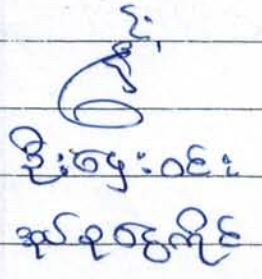 ဦးဌေးဝင်း
အုပ်စုငွေကိုင်